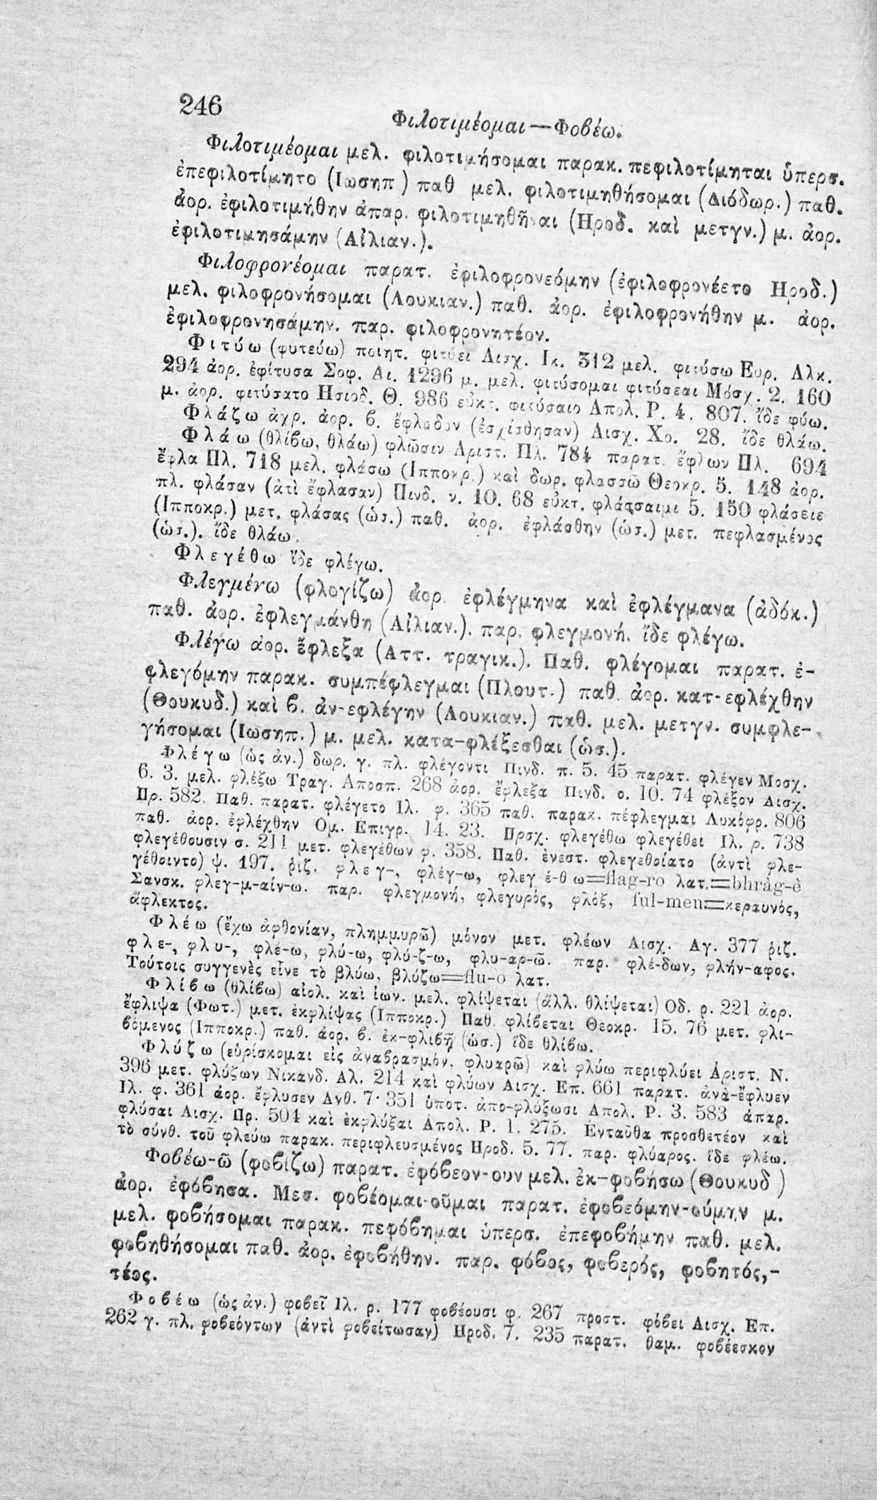 246
Φιλοτιμέομαι—Φοβέω.
Φιλοτιμέομαι μελ. φιλοτιμήσομαι παρακ. πεφιλοτίμηται ὑπερσ.
ἐπεφιλοτίμητο (Ιωσηπ) παθ μελ. φιλοτιμηθήσομαι (Διόδωρ.) παθ.
ἀορ. ἐφιλοτιμήθην ἀπαρ. φιλοτιμηθῆναι (Ηροδ. καὶ μετγν.) μ. ἀορ.
ἐφιλοτιμησάμην (Αἰλιαν.).
Φιλοφρονέομαι παρατ. ἐφιλοφρονεόμην (ἐφιλοφρονέετο Ηροδ.)
μελ. φιλοφρονήσομαι (Λουκιαν.) παθ. ἀορ. ἐφιλοφρονήθην μ. ἀορ.
ἐφιλοφρονησάμην. παρ. φιλοφρονητέον.
Φιτύω (φυτεύω) ποιητ. φιτύει Αισχ. Ικ. 312 μελ. φιτύσω Ευρ. Αλκ.
294 ἀορ. ἐφίτυσα Σοφ. Αι. 1296 μ. μελ. φιτύσομαι φιτύσεαι Μόσχ. 2. 160
μ. ἀορ. φιτύσατο Ησιοδ. Θ. 986 εὐκτ. φιτύσαιο Απολ. Ρ. 4. 807. ἴδε φύω.
Φλάζω ἀχρ. ἀορ. β. ἔφλαδον (ἐσχίσθησαν) Αισχ. Χο. 28. ἴδε θλάω.
Φλάω (θλίβω, θλάω) φλῶσιν Αριστ. Πλ. 784 παρατ. ἔφλων Πλ. 694
ἔφλα Πλ. 718 μελ. φλάσω (Ιπποκρ.) καὶ δωρ. φλασσῶ Θεοκρ. 5. 148 ἀορ.
πλ. φλάσαν (ἀτὶ ἔφλασαν) Πινδ. ν. 10. 68 εὐκτ. φλάσσαιμι 5. 150 φλάσειε
(Ιπποκρ.) μετ. φλάσας (ὡσ.) παθ. ἀορ. ἐφλάσθην (ὡσ.) μετ. πεφλασμένος
(ὡσ.). ἴδε θλάω.
Φλεγέθω ἴδε φλέγω.
Φλεγμένω (φλογίζω) ἀορ ἐφλέγμηνα καὶ ἐφλέγμανα (ἀδόκ.)
παθ. ἀορ. ἐφλεγμάνθη (Αἰλιαν.). παρ. φλεγμονή. ἴδε φλέγω.
Φλέγω ἀορ. ἔφλεξα (Αττ. τραγικ.). Παθ. φλέγομαι παρατ. ἐ-
φλεγόμην παρακ. συμπέφλεγμαι (Πλουτ.) παθ ἀορ. κατ-εφλέχθην
(Θουκυδ.) καὶ β. ἀν-εφλέγην (Λουκιαν.) παθ. μελ. μετγν. συμφλε-
γήσομαι (Ιωσηπ.) μ. μελ. κατα-φλέξεσθαι (ὡσ.).
Φλέγω (ὡς ἀν.) δωρ. γ. πλ. φλέγοντι Πινδ. π. 5. 45 παρατ. φλέγεν Μοσχ.
6. 3. μελ. φλέξω Τραγ. Αποσπ. 268 ἀορ. ἔφλεξα Πινδ. ο. 10. 74 φλέξον Αισχ.
Πρ. 582. Παθ. παρατ. φλέγετο Ιλ. φ. 365 παθ. παρακ. πέφλεγμαι Λυκόφρ. 806
παθ. ἀορ. ἐφλέχθην Ομ. Επιγρ. 14. 23. Πρσχ. φλεγέθω φλεγέθει Ιλ. ρ. 738
φλεγέθουσιν σ. 211 μετ. φλεγέθων φ. 358. Παθ. ἐνεστ. φλεγεθοίατο (ἀντὶ φλε-
γέθοιντο) ψ. 197. ῥιζ. φλεγ-, φλέγ-ω, φλεγ έ-θω=flag-ro λατ.=bhrâg-ê
Σανσκ. φλεγ-μ-αίν-ω. παρ. φλεγμονή, φλεγυρός, φλόξ, ful-men=κεραυνός,
ἄφλεκτος.
Φλέω (ἔχω ἀφθονίαν, πλημμυρῶ) μόνον μετ. φλέων Αισχ. Αγ. 377 ῥιζ.
φλε-, φλυ-, φλέ-ω, φλύ-ω, φλύ-ζ-ω, φλυ-αρ-ῶ. παρ. φλέ-δων, φλήν-αφος.
Τούτοις συγγενὲς εἶνε τὸ βλύω, βλύζω=flu-o λατ.
Φλίβω (θλίβω) αἰολ. καὶ ἰων. μελ. φλίψεται (ἀλλ. θλίψεται) Οδ. ρ. 221 ἀορ.
ἔφλιψα (Φωτ.) μετ. ἐκφλίψας (Ιπποκρ.) Παθ. φλίβεται Θεοκρ. 15. 76 μετ. φλι-
βόμενος (Ιπποκρ.) παθ. ἀορ. β. ἐκ-φλιβῇ (ὡσ.) ἴδε θλίβω.
Φλύζω (εὑρίσκομαι εἰς ἀναβρασμόν, φλυαρῶ) καὶ φλύω περιφλύει Αριστ. Ν.
396 μετ. φλύζων Νικανδ. Αλ. 214 καὶ φλύων Αισχ. Επ. 661 παρατ. ἀνὰ-ἔφλυεν
Ιλ. φ. 361 ἀορ. ἔφλυσεν Ανθ. 7. 351 ὑποτ. ἀπο-φλύξωσι Απολ. Ρ. 3. 583 ἀπαρ.
φλῦσαι Αισχ. Πρ. 504 καὶ ἐκφλύξαι Απολ. Ρ. 1. 275. Ενταῦθα προσθετέον καὶ
τὸ σύνθ. τοῦ φλεύω παρακ. περιφλευσμένος Ηροδ. 5. 77. παρ. φλύαρος. ἴδε φλέω.
Φοβέω-ῶ (φοβίζω) παρατ. ἐφόβεον-ουν μελ. ἐκ-φοβήσω (Θουκυδ)
ἀορ. ἐφόβησα. Μεσ. φοβέομαι-οῦμαι παρατ. ἐφοβεόμην-ούμην μ.
μελ. φοβήσομαι παρακ. πεφόβημαι ὑπερσ. ἐπεφοβήμην παθ. μελ.
φοβηθήσομαι παθ. ἀορ. ἐφοβήθην. παρ. φόβος, φοβερός, φοβητός,-
τέος.
Φοβέω (ὡς ἀν.) φοβεῖ Ιλ. ρ. 177 φοβέουσι φ. 267 προστ. φόβει Αισχ. Επ.
262 γ. πλ. φοβεόντων (ἀντὶ φοβείτωσαν) Ηροδ. 7. 235 παρατ. θαμ. φοβέεσκον